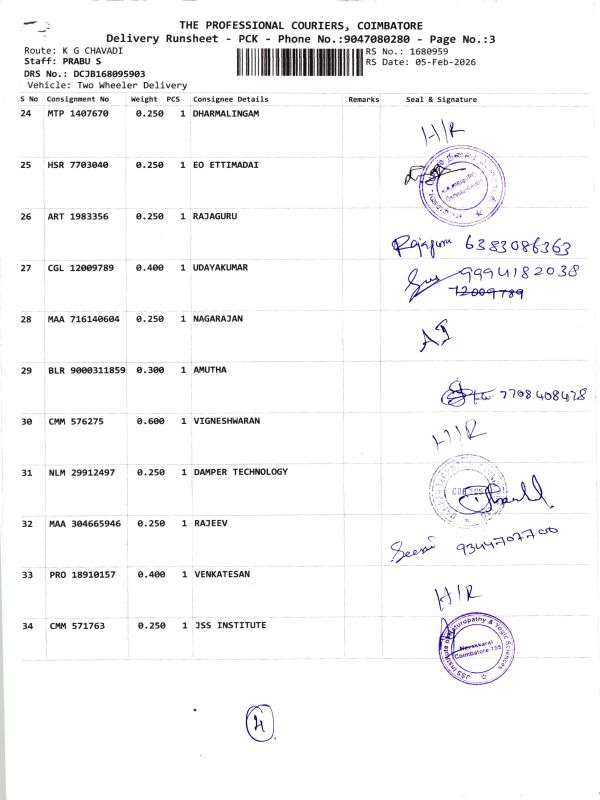 THE PROFESSIONAL COURIERS, COIMBATORE
Delivery Runsheet - PCK - Phone No.:9047080280 - Page No.:3
Route: K G CHAVADI
RS No.: 1680959
Staff: PRABU S
RS Date: 05-Feb-2026
DRS No.: DCJB168095903
Vehicle: Two Wheeler Delivery
S No Consignment No Weight PCS Consignee Details Remarks Seal & Signature
24 MTP 1407670 0.250 1 DHARMALINGAM
H/R
25 HSR 7703040 0.250 1 EO ETTIMADAI
26 ART 1983356 0.250 1 RAJAGURU
Rajaguru 6383086363
27 CGL 12009789 0.400 1 UDAYAKUMAR
9994182038
12009789
28 MAA 716140604 0.250 1 NAGARAJAN
29 BLR 9000311859 0.300 1 AMUTHA
7708408478
30 CMM 576275 0.600 1 VIGNESHWARAN
H/R
31 NLM 29912497 0.250 1 DAMPER TECHNOLOGY
32 MAA 304665946 0.250 1 RAJEEV
9344707700
33 PRO 18910157 0.400 1 VENKATESAN
H/R
34 CMM 571763 0.250 1 JSS INSTITUTE
JSS Institute of Naturopathy & Yogic Sciences
Navakkarai
Coimbatore-105